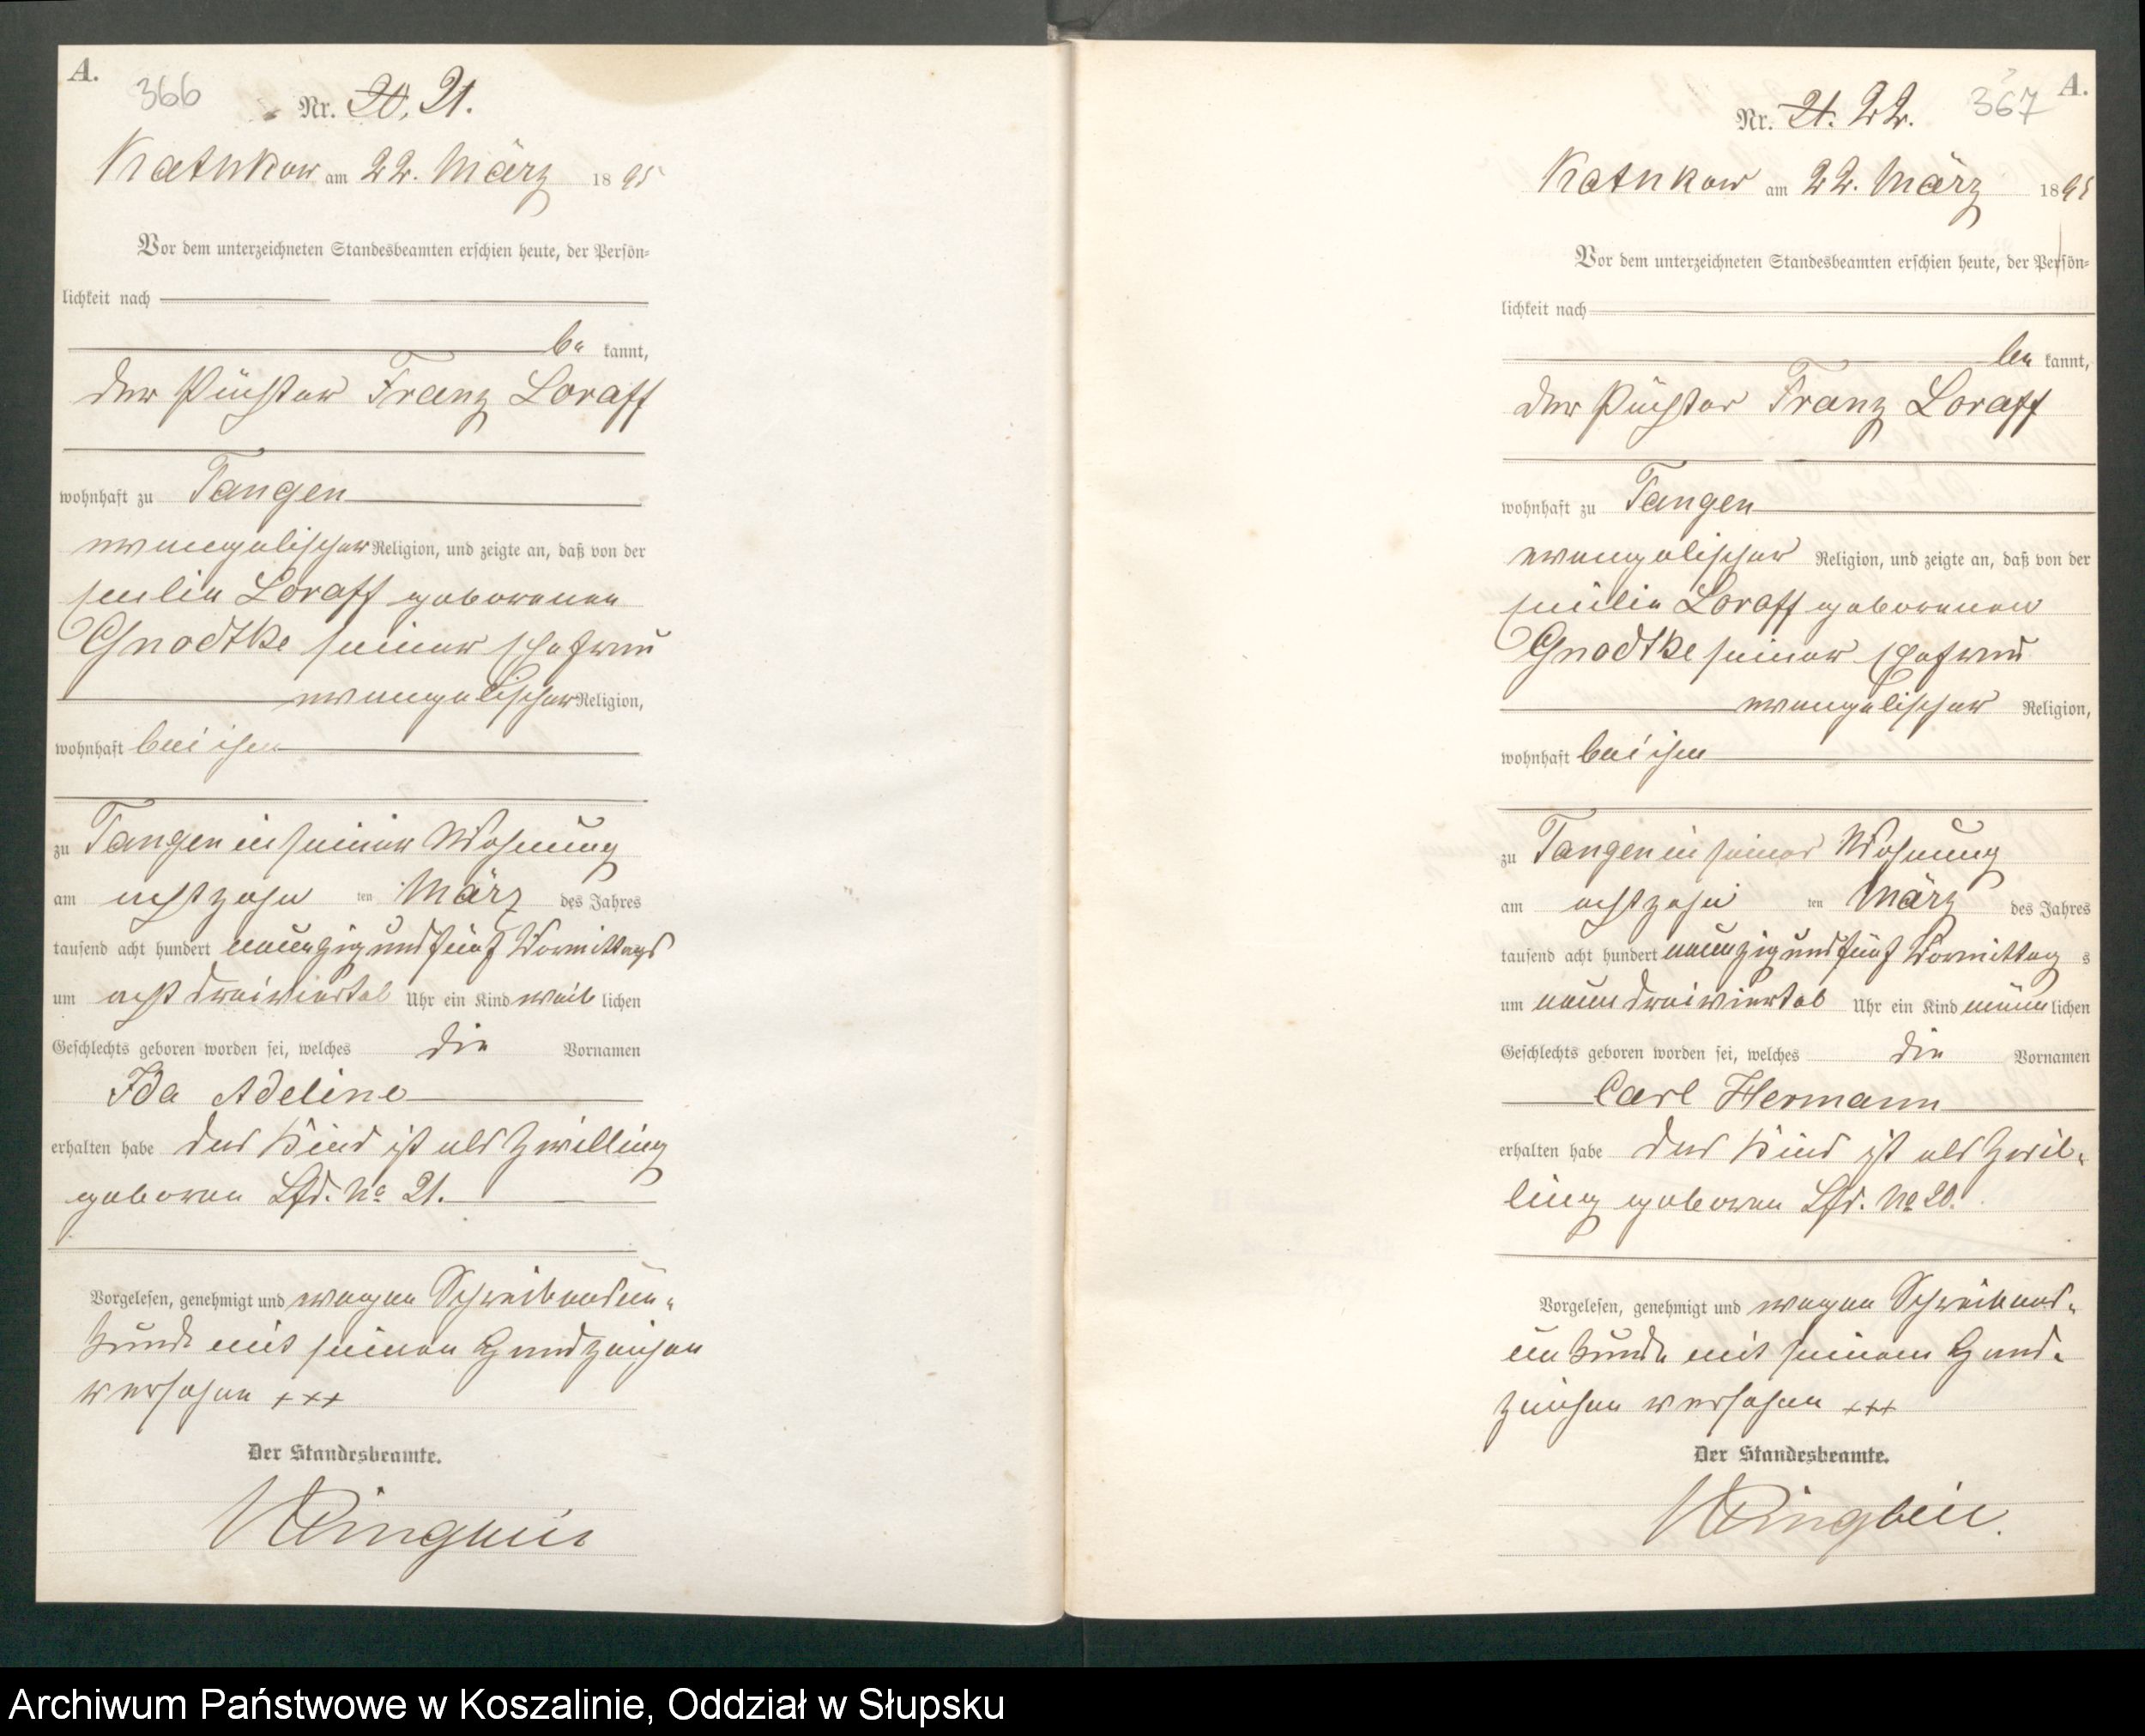 A.
366
Nr. 20. 21.
Kathkow am 22. März 1895
Vor dem unterzeichneten Standesbeamten erschien heute, der Persön-
lichkeit nach
be kannt,
der Franz Loraff
wohnhaft zu Tangen
evangelischer Religion, und zeigte an, daß von der
Loraff geborenen
Gnodtke seiner Ehefrau
evangelischer Religion,
wohnhaft bei ihm
zu Tangen in seiner Wohnung
am achtzehn ten März des Jahres
tausend acht hundert neunzig und fünf Vormittags
um acht dreiviertel Uhr ein Kind weib lichen
Geschlechts geboren worden sei, welches die Vornamen
Ida Adeline
erhalten habe Das Kind ist als Zwilling
geboren Lfd. No 21.
Vorgelesen, genehmigt und wegen Schreibensun-
kunde mit seinen Handzeichen
versehen +++
Der Standesbeamte.
A.
367
Nr. 21. 22.
Kathkow am 22. März 1895
Vor dem unterzeichneten Standesbeamten erschien heute, der Persön-
lichkeit nach
be kannt,
der Franz Loraff
wohnhaft zu Tangen
evangelischer Religion, und zeigte an, daß von der
Loraff geborenen
Gnodtke seiner Ehefrau
evangelischer Religion,
wohnhaft bei ihm
zu Tangen in seiner Wohnung
am achtzehn ten März des Jahres
tausend acht hundert neunzig und fünf Vormittag s
um neun dreiviertel Uhr ein Kind männ lichen
Geschlechts geboren worden sei, welches die Vornamen
Carl Hermann
erhalten habe Das Kind ist als Zwil-
ling geboren Lfd. No 20.
Vorgelesen, genehmigt und wegen Schreibens-
unkunde mit seinem Hand-
zeichen versehen +++
Der Standesbeamte.
Archiwum Państwowe w Koszalinie, Oddział w Słupsku